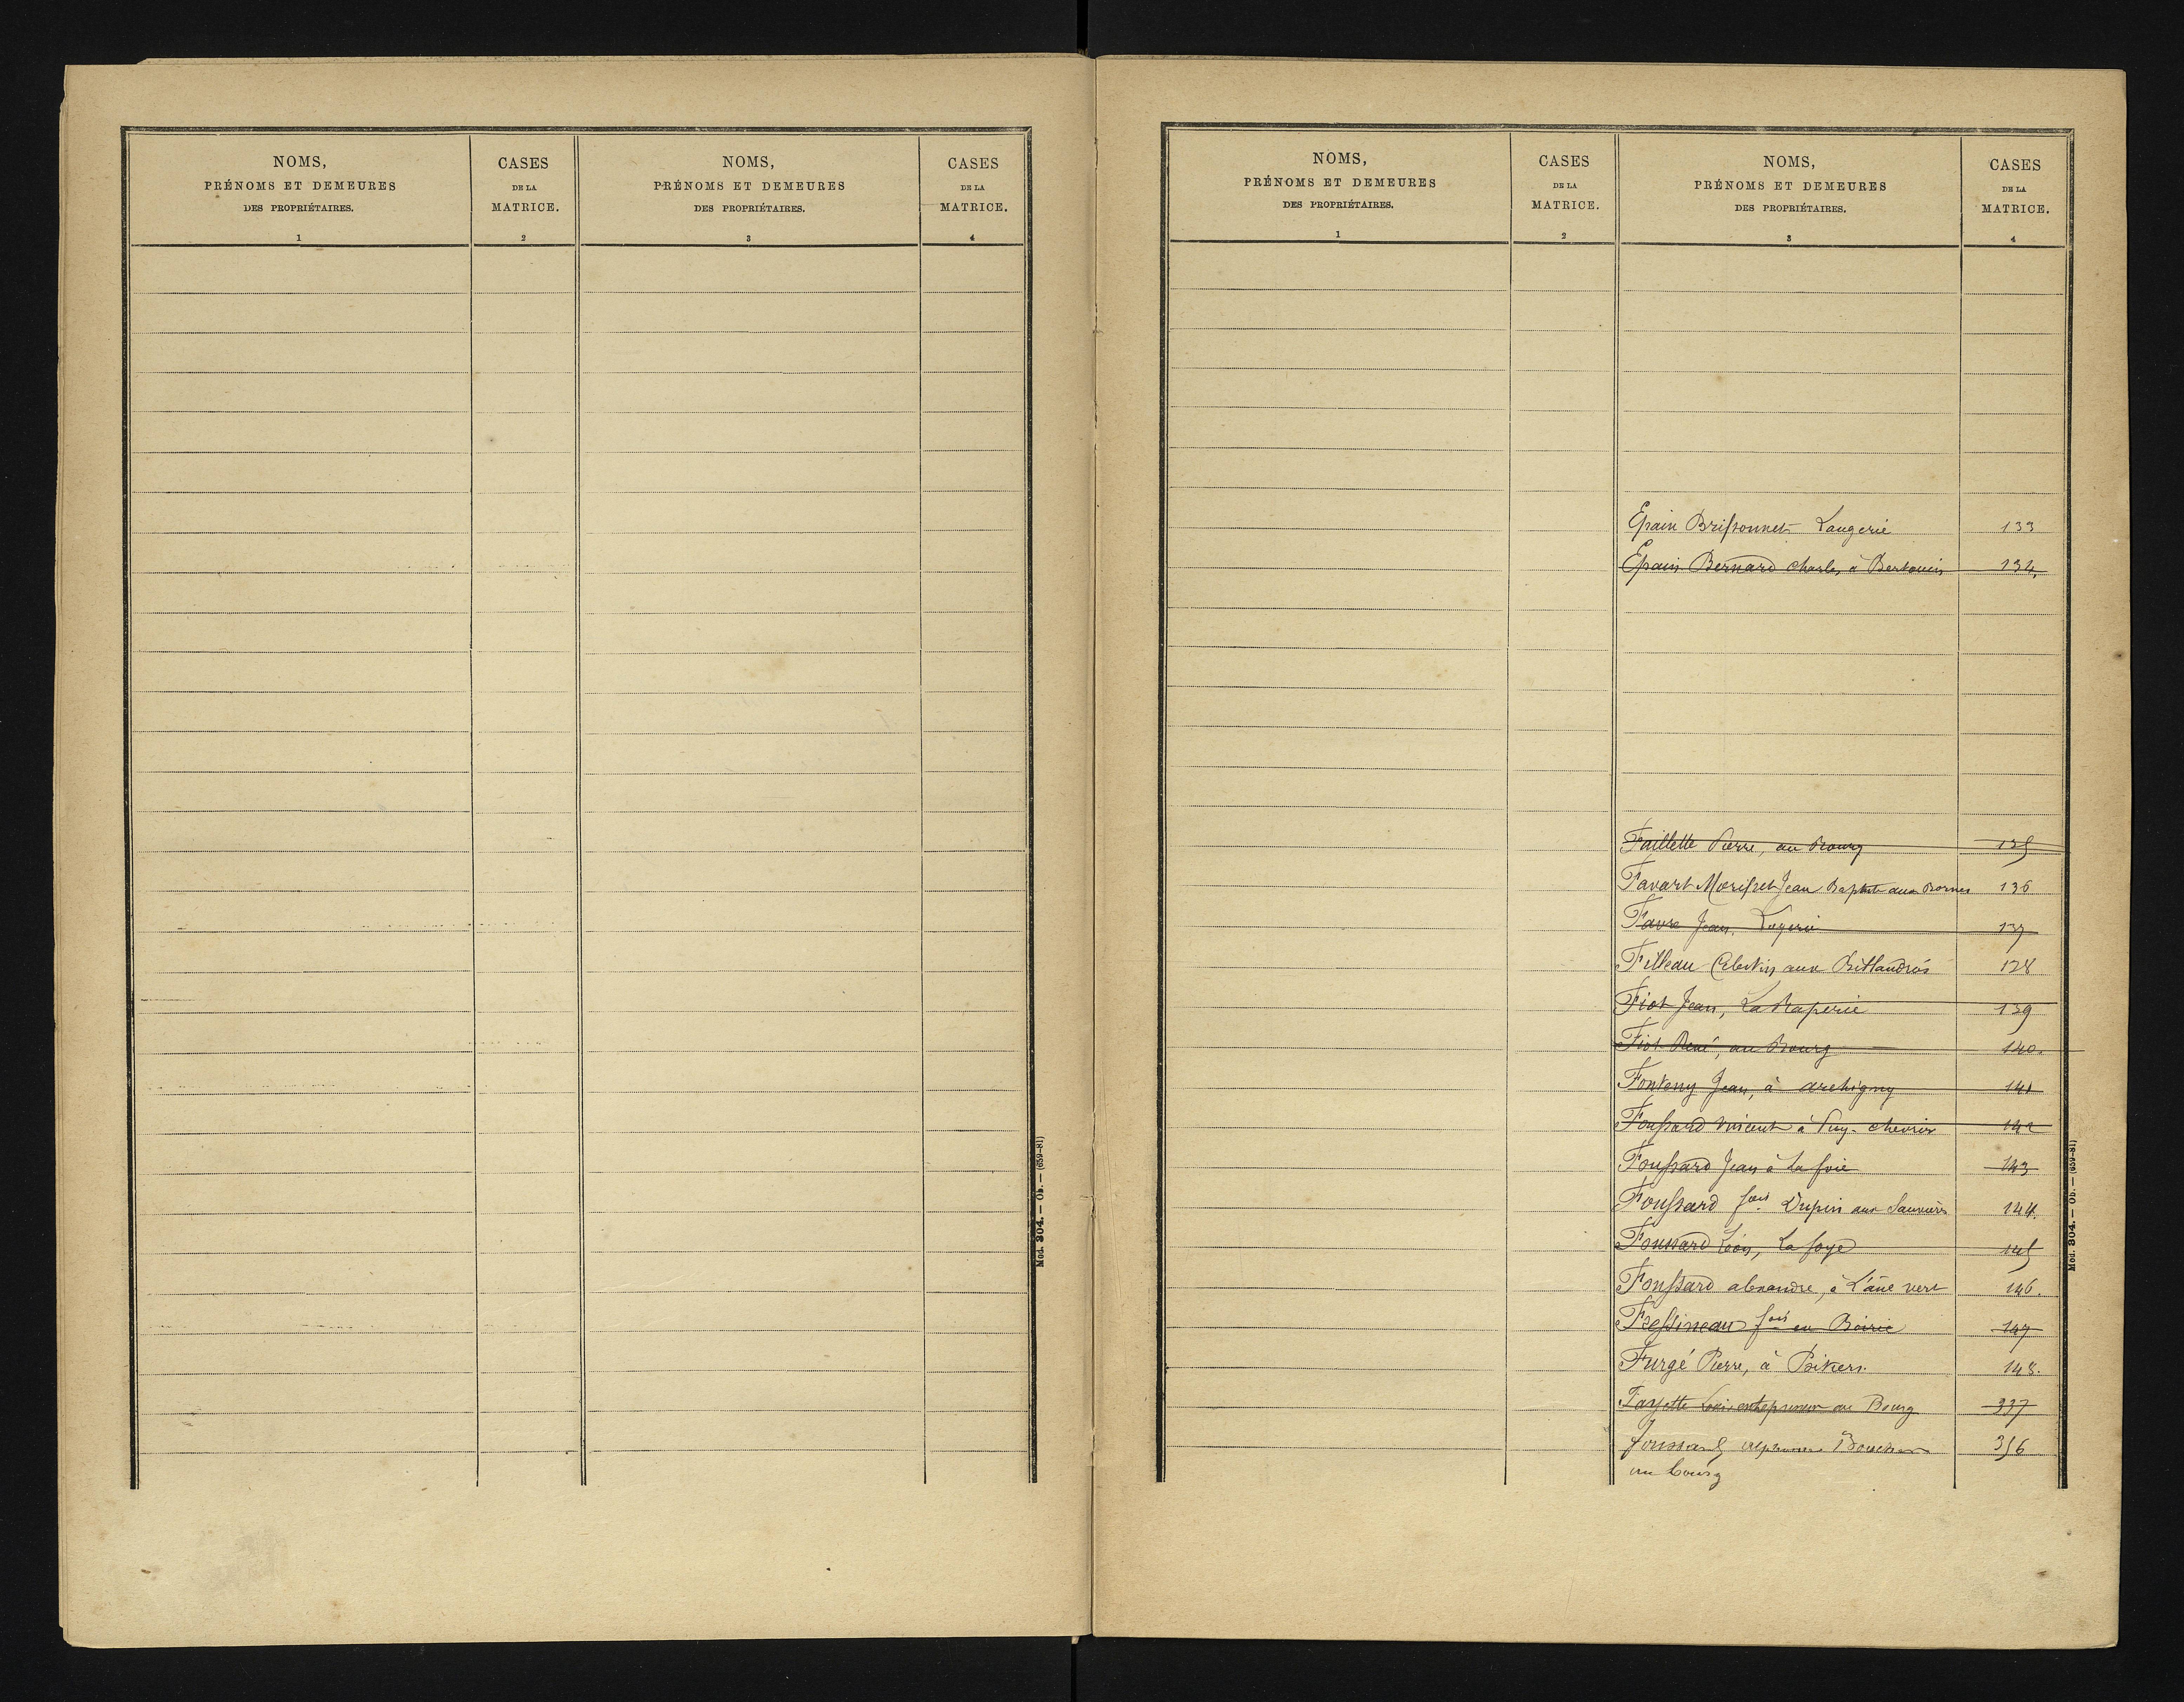 NOMS,
PRÉNOMS ET DEMEURES
DES PROPRIÉTAIRES.
1
CASES
DE LA
MATRICE.
2
NOMS,
PRÉNOMS ET DEMEURES
DES PROPRIÉTAIRES.
3
CASES
DE LA
MATRICE.
4
Mod. 304. — Ob. — (659-81)
NOMS,
PRÉNOMS ET DEMEURES
DES PROPRIÉTAIRES.
1
CASES
DE LA
MATRICE.
2
NOMS,
PRÉNOMS ET DEMEURES
DES PROPRIÉTAIRES.
3
CASES
DE LA
MATRICE.
4
Epain Brissonnet Laugerie 133
Epain Bernard Charles à 134.
Faillette Pierre, au Bourg 135
Favart Morisset Jean Baptiste aux Bornes 136
Favre Jean, 137
Filleau Célestin aux 128
Fiot Jean, La Raperie 139
Fiot René, au Bourg 140.
Fonteny Jean, à archigny 141
Foussard Vincent à Puy-chevrier 142
Foussard Jean à la foie 143
Foussard fois Dupin aux 144.
Foussard Léon, La foye 145
Foussard alexandre, à L'âne vert 146.
Fressineau fois en 147
Furgé Pierre, à Poitiers. 148.
Fayette Louis entrepreneur au Bourg 337
foussard alphonse 356
au bourg
Mod. 304. — Ob. — (659-81)